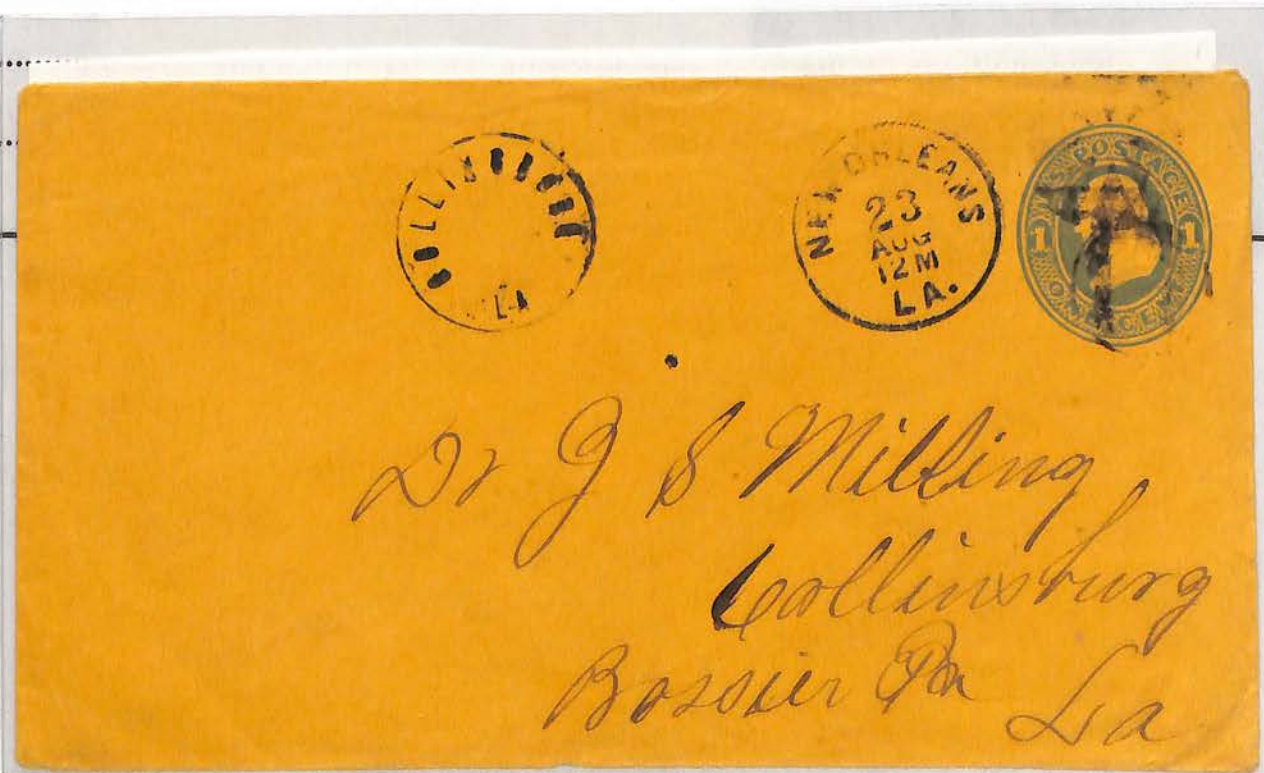 NEW ORLEANS
23
AUG
12 M
LA.
U.S. POSTAGE
1 1
ONE CENT
LA
Dr J S Milling
Collinsburg
Bossier Pa
La